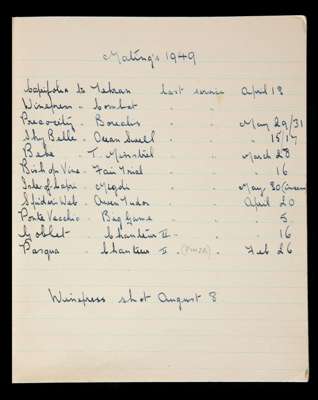 Matings 1949
Caprifolia to Tehran last service April 18
Winepress - Combat " "
Preocity. Borealis " " May 29/31
Shy Belle. Ocean Swell " " " 15/17
Bebe . T. Minstrel " " March 28
Birds of Vine. Fair Trial " " " 16
Isle of Capri . Megdi " " May 30
Spider Web. Owen Tudor " " April 20
Ponte Vecchio. Big Game " " " 5
Goblet. Chanteur II " " 16
Pasqua Chanteur II . . Feb 26
Winepress shot August 8